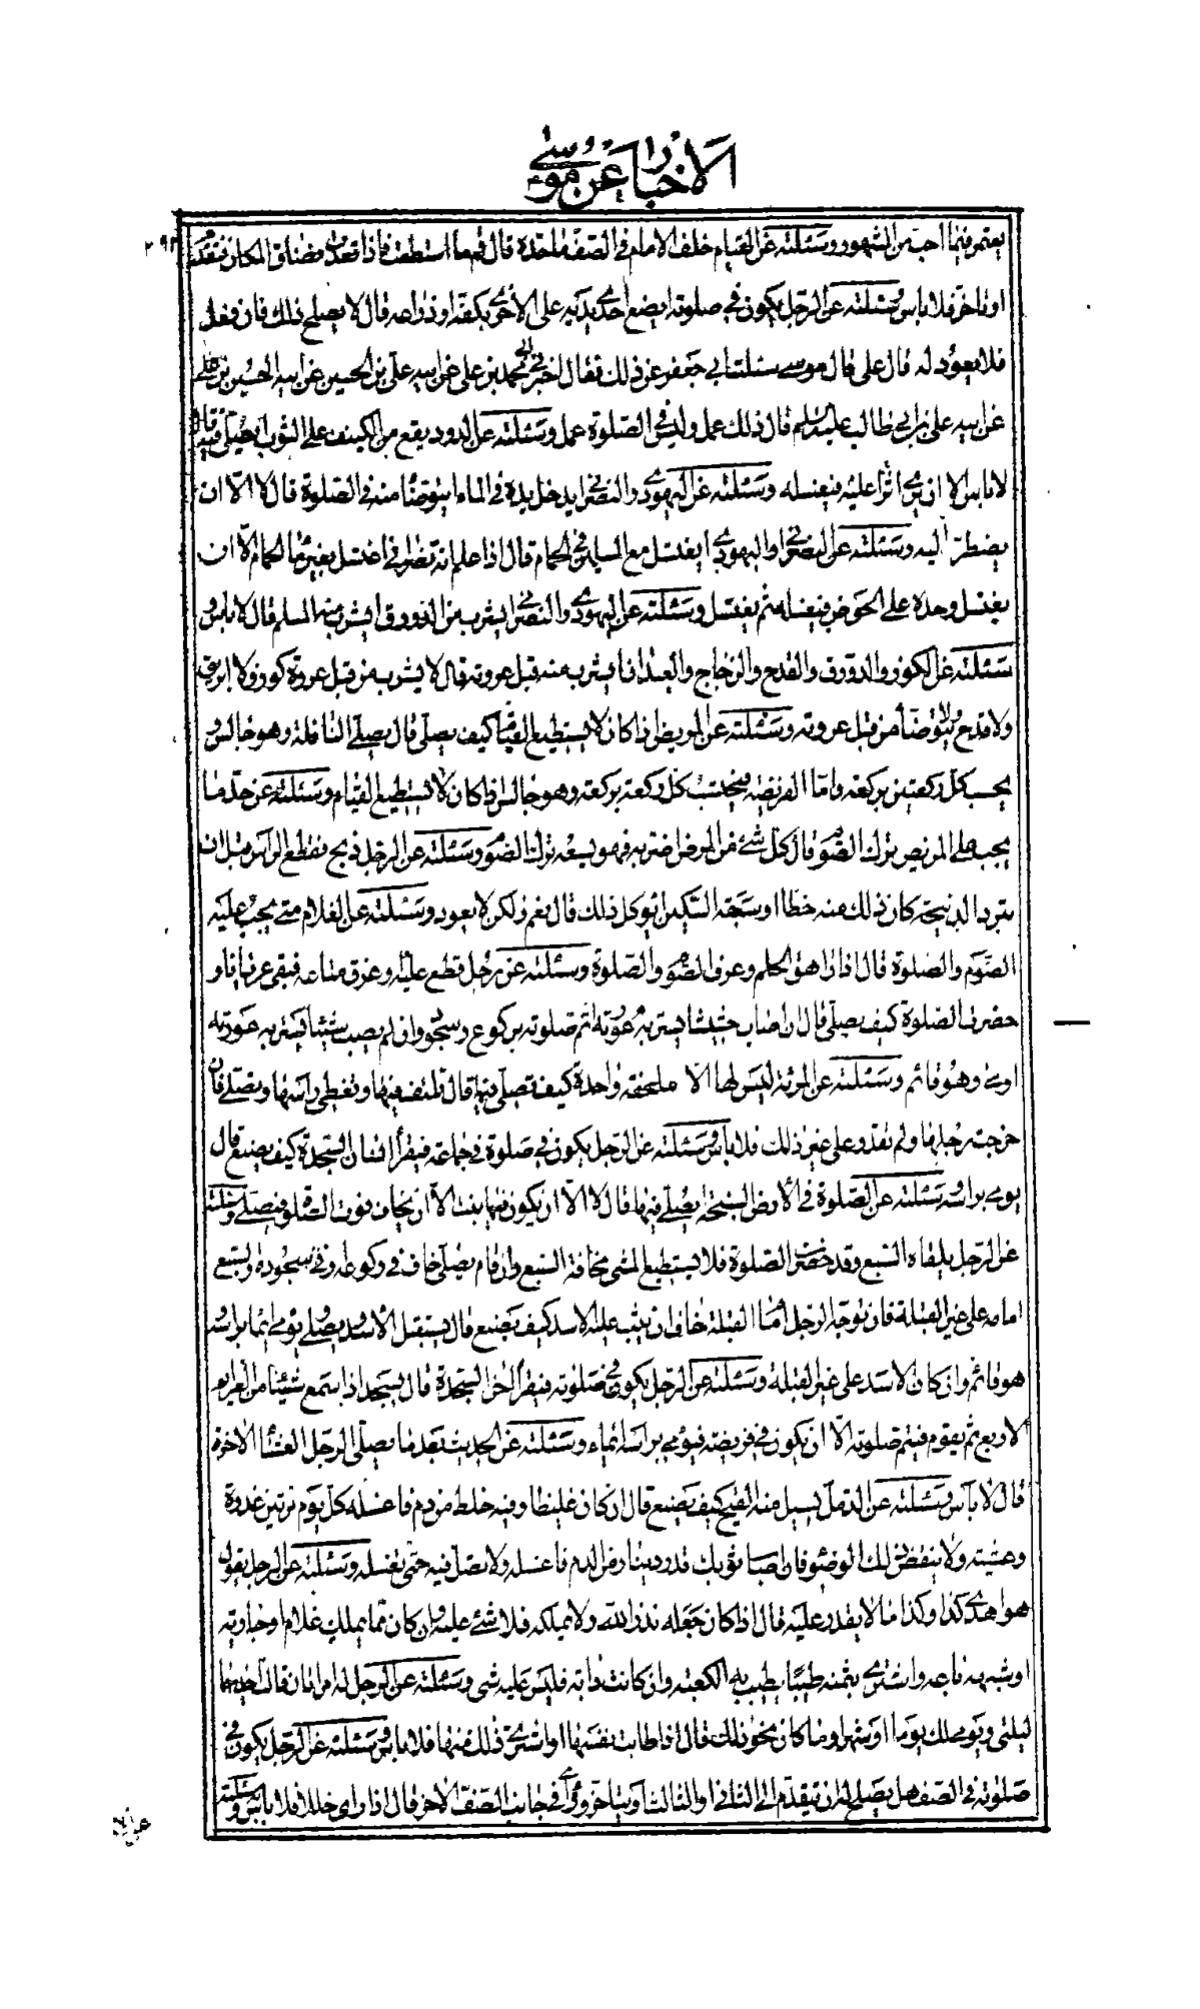 الاخبار عن موسى
٢٩٢
يعتمر فيما احب من الشهور وسئلته عن القيام خلف الامام في الصف ما حده قال قم ما استطعت فاذا قعدت فضاق المكان فتقدم
او تاخر فلا باس وسئلته عن الرجل يكون في صلوته ايضع احدى يديه على الاخرى بكفه او ذراعه قال لا يصلح ذلك فان فعل
فلا يعود له قال على قال موسى سئلت ابي جعفر عن ذلك فقال اخبرني ابي محمد بن علي عن ابيه علي بن الحسين عن ابيه الحسين بن علي
عن ابيه علي بن ابي طالب عليه السلم قال ذلك عمل وليس في الصلوة عمل وسئلته عن الدود يقع من الكنيف على الثوب ايصلى فيه قال
لا باس الا ان ترى اثرا عليه فتغسله وسئلته عن اليهودى والنصرانى يدخل يده في الماء ايتوضأ منه في الصلوة قال لا الا ان
يضطر اليه وسئلته عن النصرانى واليهودى ايغتسل مع المسلمين في الحمام قال اذا علم انه نصرانى اغتسل بغير ماء الحمام الا ان
يغتسل وحده على الحوض فيغسله ثم يغتسل وسئلته عن اليهودى والنصرانى يشرب من الدورق ايشرب منه المسلم قال لا باس و
سئلته عن الكوز والدورق والقدح والزجاج والعيدان ايشرب منه قبل عروته قال لا يشرب من قبل عروة كوز ولا ابريق
ولا قدح ولا يتوضأ من قبل عروته وسئلته عن المريض اذا كان لا يستطيع القيام كيف يصلى قال يصلى النافلة وهو جالس و
يحسب كل ركعتين بركعة واما الفريضة فيحتسب كل ركعة بركعة وهو جالس اذا كان لا يستطيع القيام وسئلته عن حد ما
يجب على المريض ترك الصوم قال كل شئ من المرض اضر به فهو يسعه ترك الصوم وسئلته عن الرجل ذبح فقطع الراس قبل ان
تبرد الذبيحة كان ذلك منه خطا او سبقه السكين ايؤكل ذلك قال نعم ولكن لا يعود وسئلته عن الغلام متى يجب عليه
الصوم والصلوة قال اذا راهق الحلم وعرف الصوم والصلوة وسئلته عن رجل قطع عليه وغرق متاعه فبقى عريانا و
حضرت الصلوة كيف يصلى قال ان اصاب حشيشا يستر به عورته اتم صلوته بركوع وسجود وان لم يصب شيئا يستر به عورته
اومى وهو قائم وسئلته عن المرئة ليس لها الا ملحفة واحدة كيف تصلى فيها قال تلتف فيها وتغطى راسها وتصلى فان
خرجت رجلها ولم تقدر على غير ذلك فلا باس وسئلته عن الرجل يكون في صلوة في جماعة فيقرأ انسان السجدة كيف يصنع قال
يومى براسه وسئلته عن الصلوة في الارض السبخة ايصلى فيها قال لا الا ان يكون فيها نبت الا ان يخاف فوت الصلوة فيصلى وسئلته
عن الرجل يلقاه السبع وقد حضرت الصلوة فلا يستطيع المشى مخافة السبع وان قام يصلى خاف في ركوعه وفي سجوده والسبع
امامه على غير القبلة فان توجه الرجل امام القبلة خاف ان يثب عليه الاسد كيف يصنع قال يستقبل الاسد ويصلى ويومى ايماء براسه و
هو قائم وان كان الاسد على غير القبلة وسئلته عن الرجل يكون في صلوته فيقرأ اخر السجدة قال يسجد اذا سمع شيئا من العزايم
الاربع ثم يقوم فيتم صلوته الا ان يكون في فريضة فيومى براسه ايماء وسئلته عن الحديث بعد ما يصلى الرجل العشاء الاخرة
قال لا باس وسئلته عن الدمل يسيل منه القيح كيف يصنع قال ان كان غليظا وفيه خلط من دم فاغسله كل يوم مرتين غدوة
وعشية ولا ينقض ذلك الوضوء فان اصاب ثوبك قدر دينار من الدم فاغسله ولا تصل فيه حتى تغسله وسئلته عن الرجل يقول
هو اهدى كذا وكذا ما لا يقدر عليه قال اذا كان جعله نذر الله ولا يملكه فلا شئ عليه وان كان مما يملك غلام او جارية
او شبهه باعه واشترى بثمنه طيبا يطيب به الكعبة وان كانت دابة فليس عليه شى وسئلته عن الرجل له امراتان قالت احديهما
ليلتى ويومى لك يوما او شهرا وما كان نحو ذلك قال اذا طابت نفسها او اشترى ذلك منها فلا باس وسئلته عن الرجل يكون في
صلوته في الصف هل يصلح له ان يتقدم الى الثانى او الثالث او يتاخر وراء في جانب الصف الاخر قال اذا راى خللا فلا باس وسئلته